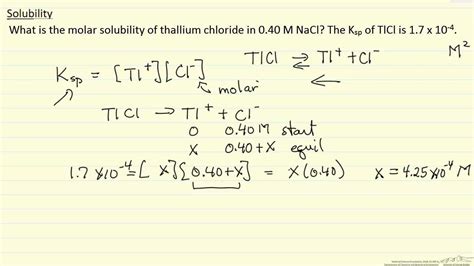 Solubility
What is the molar solubility of thallium chloride in 0.40 M NaCl? The Ksp of TlCl is 1.7 x 10-4.
M²
TlCl ⇌ Tl⁺ + Cl⁻
Ksp = [Tl⁺][Cl⁻]
molar
TlCl → Tl⁺ + Cl⁻
0 0.40M start
x 0.40+x equil
1.7x10⁻⁴ = [x][0.40+x] = x(0.40) x = 4.25x10⁻⁴ M